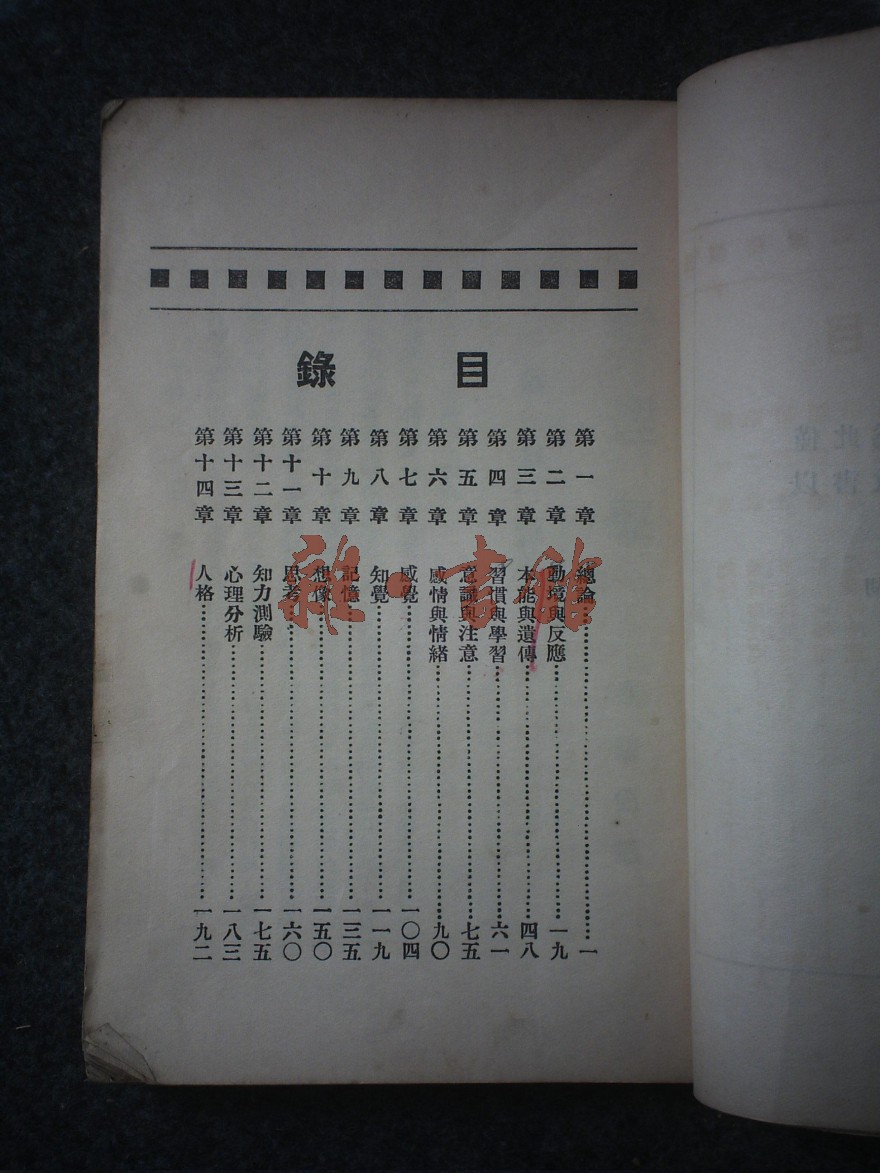 目錄
第一章 總論……一
第二章 動境與反應……一九
第三章 本能與遺傳……四八
第四章 習慣與學習……六一
第五章 意識與注意……七五
第六章 感情與情緒……九〇
第七章 感覺……一〇四
第八章 知覺……一一九
第九章 記憶……一三五
第十章 想像……一五〇
第十一章 思考……一六〇
第十二章 知力測驗……一七五
第十三章 心理分析……一八三
第十四章 人格……一九二
雜·書館